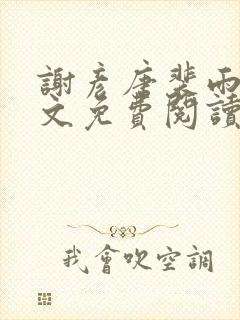 謝彥唐裴雨
文免費閱讀
我會吹空調